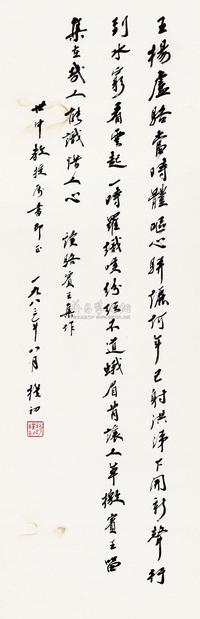 王楊盧駱當時體嘔心駢儷何年已射洪濤下開新聲行
到水窮看雲起一時羅織嘆紛紜不道蛾眉肯讓人草檄賓王留
集在幾人能識惜人心 讀駱賓王集作
世中教授屬書即正 一九八三年八月 樸初